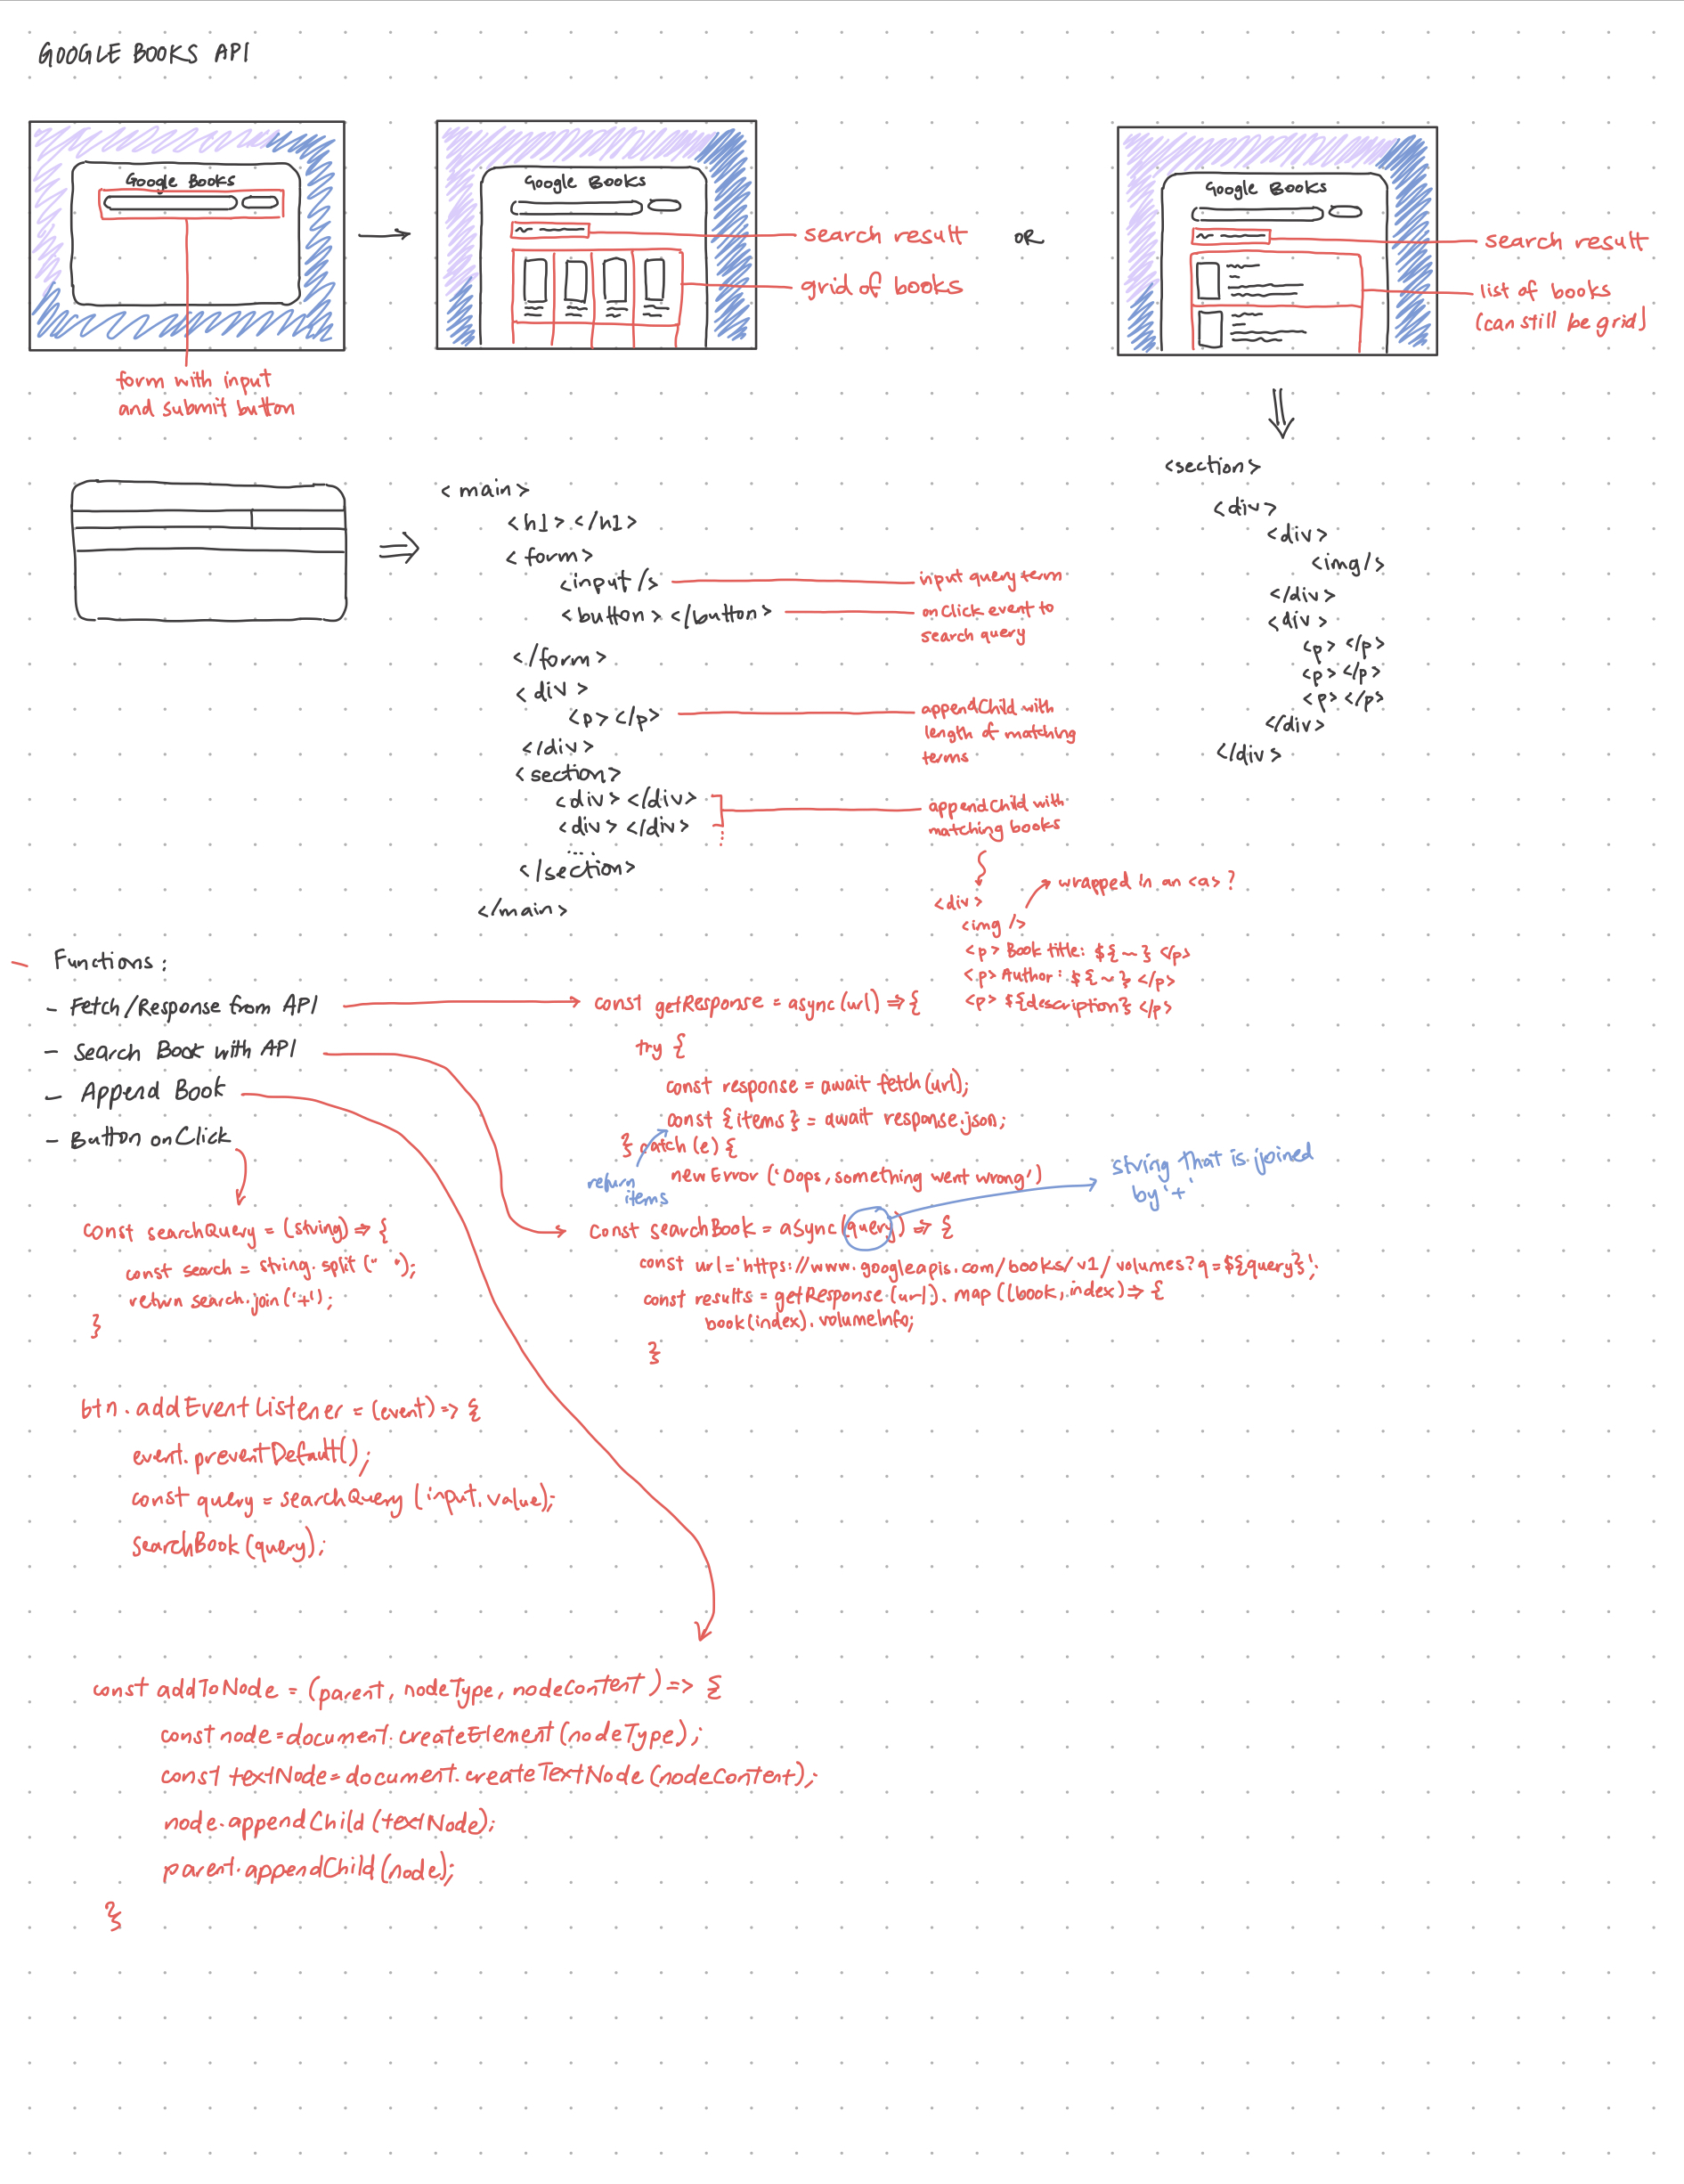 GOOGLE BOOKS API
Google Books
form with input
and submit button
Google Books
search result
grid of books
OR
Google Books
search result
list of books
(can still be grid)
<main>
<h1> </h1>
<form>
<input /s
<button> </button>
</form>
<div>
<p> </p>
</div>
<section>
<div> </div>
<div> </div>
....
</section>
</main>
input query term
onClick event to
search query
appendChild with
length of matching
terms
appendChild with
matching books
<div>
<img />
wrapped in an <a> ?
<p> Book title: ${~} </p>
<p> Author: ${~} </p>
<p> ${description} </p>
<section>
<div>
<div>
<img/s
</div>
<div>
<p> </p>
<p> </p>
<p> </p>
</div>
</div>
- Functions:
- Fetch/Response from API
- Search Book with API
- Append Book
- Button onClick
const getResponse = async (url) => {
try {
const response = await fetch(url);
const {items} = await response.json;
} catch (e) {
new Error ('Oops, something went wrong')
return
items
string that is joined
by '+'
const searchBook = async (query) => {
const url = 'https://www.googleapis.com/books/v1/volumes?q=${query}';
const results = getResponse(url).map((book, index) => {
book(index).volumeInfo;
}
const searchQuery = (string) => {
const search = string.split(" ");
return search.join('+');
}
btn.addEventListener = (event) => {
event.preventDefault();
const query = searchQuery (input.value);
searchBook(query);
const addToNode = (parent, nodeType, nodeContent) => {
const node = document.createElement(nodeType);
const textNode = document.createTextNode(nodeContent);
node.appendChild(textNode);
parent.appendChild(node);
}